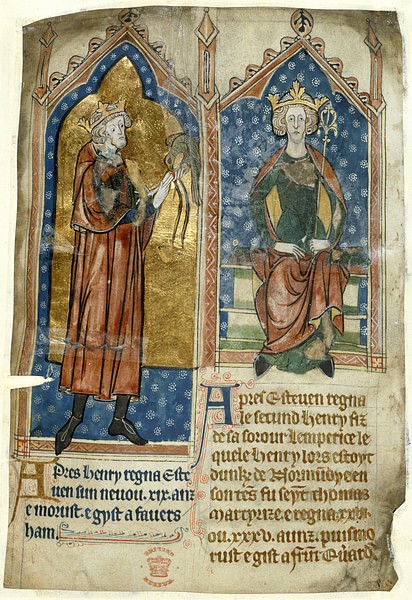 Apres henry regna Estt
uen sun neuou .xix. anz
e morust. e gyst a fauers
ham.
Apres Esteuen regna
le secund henry fiz
de sa sorour lemperice le
quele henry lors estoyt
dunk de Normudy e en
son tens fu seynt thomas
martyrize. e regna
ou .xxxv. aunz. puis mo
rust e gist a frunt
BRITISH
MUSEUM